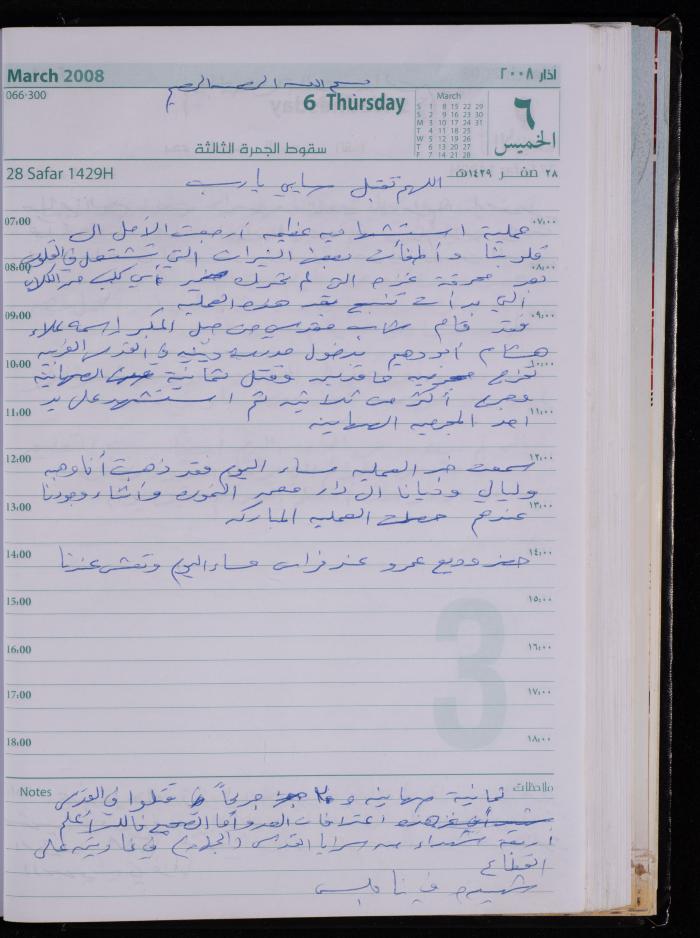 March 2008
آذار ٢٠٠٨
بسم الله الرحمن الرحيم
066-300
6 Thursday
March
S 1 8 15 22 29
S 2 9 16 23 30
M 3 10 17 24 31
T 4 11 18 25
W 5 12 19 26
T 6 13 20 27
F 7 14 21 28
٦
الخميس
سقوط الجمرة الثالثة
28 Safar 1429H
٢٨ صفر ١٤٢٩هـ
اللهم تقبل يا رب
07:00 ٠٧:٠٠
عملية استشهادية عظيمة أرجعت الأمل الى
قلوبنا وأطفأت بعض النيران التي تشتعل في القلوب
08:00 ٠٨:٠٠
بعد محرقة غزه التي لم تحرك ضمير أي كلب من الكلاب
التي بدأت تنبح بعد هذه العملية
09:00 ٠٩:٠٠
فقد قام شاب مقدسي من جبل المكبر اسمه علاء
هشام أبو دهيم بدخول مدرسة دينية في القدس الغربية
10:00 ١٠:٠٠
وقتل ثمانية الصهاينة
وجرح أكثر من ثلاثين ثم استشهد على يد
11:00 ١١:٠٠
احد المجرمين الصهاينة
12:00 ١٢:٠٠
سمعت خبر العملية مساء اليوم فقد ذهبت أنا وهبه
وليالي وديانا الى دار وأثناء وجودنا
13:00 ١٣:٠٠
عندهم حصلت العملية المباركة
14:00 ١٤:٠٠
حضر وديع عمرو عند فراس مساء اليوم وتعشى عندنا
15:00 ١٥:٠٠
16:00 ١٦:٠٠
3
17:00 ١٧:٠٠
18:00 ١٨:٠٠
Notes ملاحظات
ثمانية صهاينة و ٣٥ جريحاً قتلوا في القدس
هذه اعترافات العدو أما الصحيح فالله أعلم
أربعة شهداء من سرايا القدس (الجهاد) في غارتين على
القطاع
شهيد في نابلس